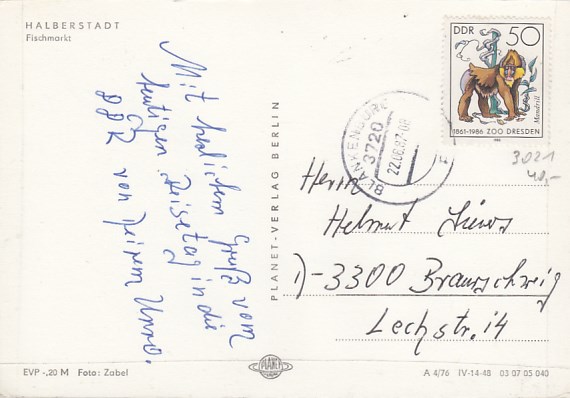 HALBERSTADT
Fischmarkt
Mit herzlichem Gruß vom
heutigen Reisetag in die
DDR von Deinem
PLANET-VERLAG BERLIN
DDR 50
Mandrill
1861-1986 ZOO DRESDEN
BLANKENBURG
3720
22.06.87-08
3021
40,-
Herrn
Helmut
D-3300 Braunschweig
Lechstr. 14
EVP -,20 M Foto: Zabel
PLANET
A 4/76 IV-14-48 03 07 05 040